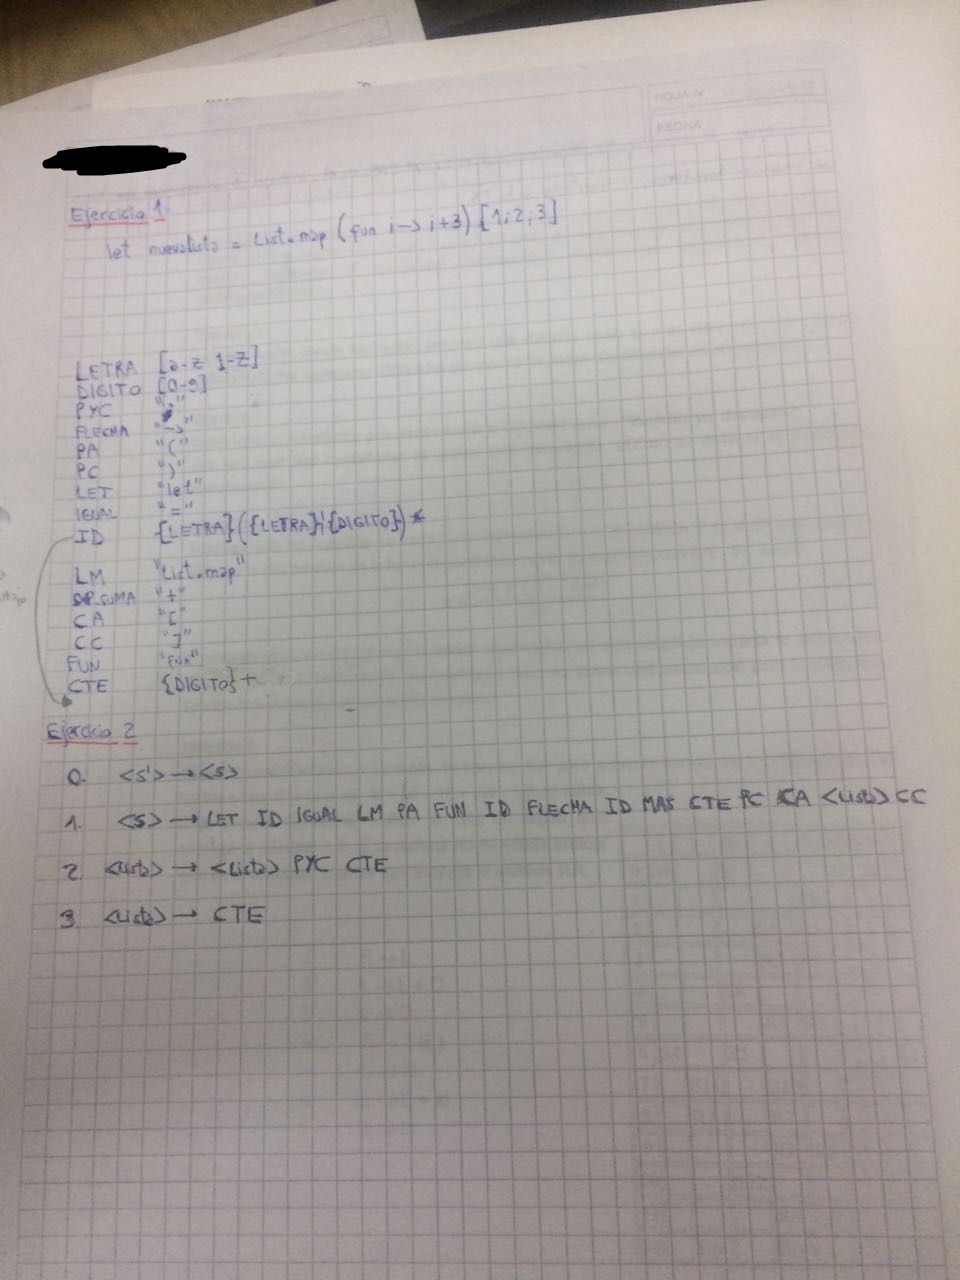 HOJA N
FECHA
Ejercicio 1.
let nuevalista = List.map (fun i-> i+3) [1;2,3]
LETRA [a-z 1-Z]
DIGITO [0-9]
PYC ";"
FLECHA "->"
PA "("
PC ")"
LET "let"
IGUAL "="
ID {LETRA}({LETRA}|{DIGITO})*
LM "List.map"
SUMA "+"
CA "["
CC "]"
FUN "fun"
CTE {DIGITO}+
Ejercicio 2
0. <S'> → <S>
1. <S> → LET ID IGUAL LM PA FUN ID FLECHA ID MAS CTE PC CA <Lista> CC
2. <Lista> → <Lista> PYC CTE
3. <Lista> → CTE